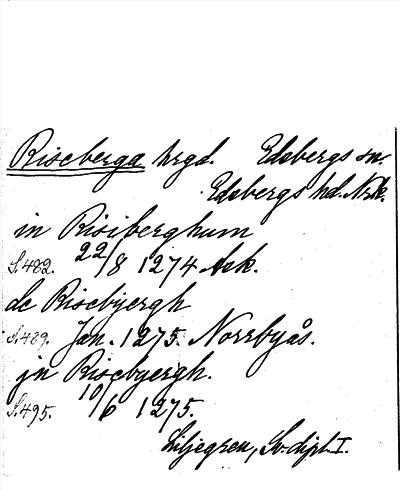 Riseberga hrgd. Edsbergs sn.
Edsbergs hd. Nrk.
in Risiberghum
S. 482. 22/8 1274 Ask.
de Risebyergh
S. 489. Jan. 1275. Norrbyås.
jn Risebyergh.
S. 495. 10/6 1275.
Liljegren, Sv. dipl. I.